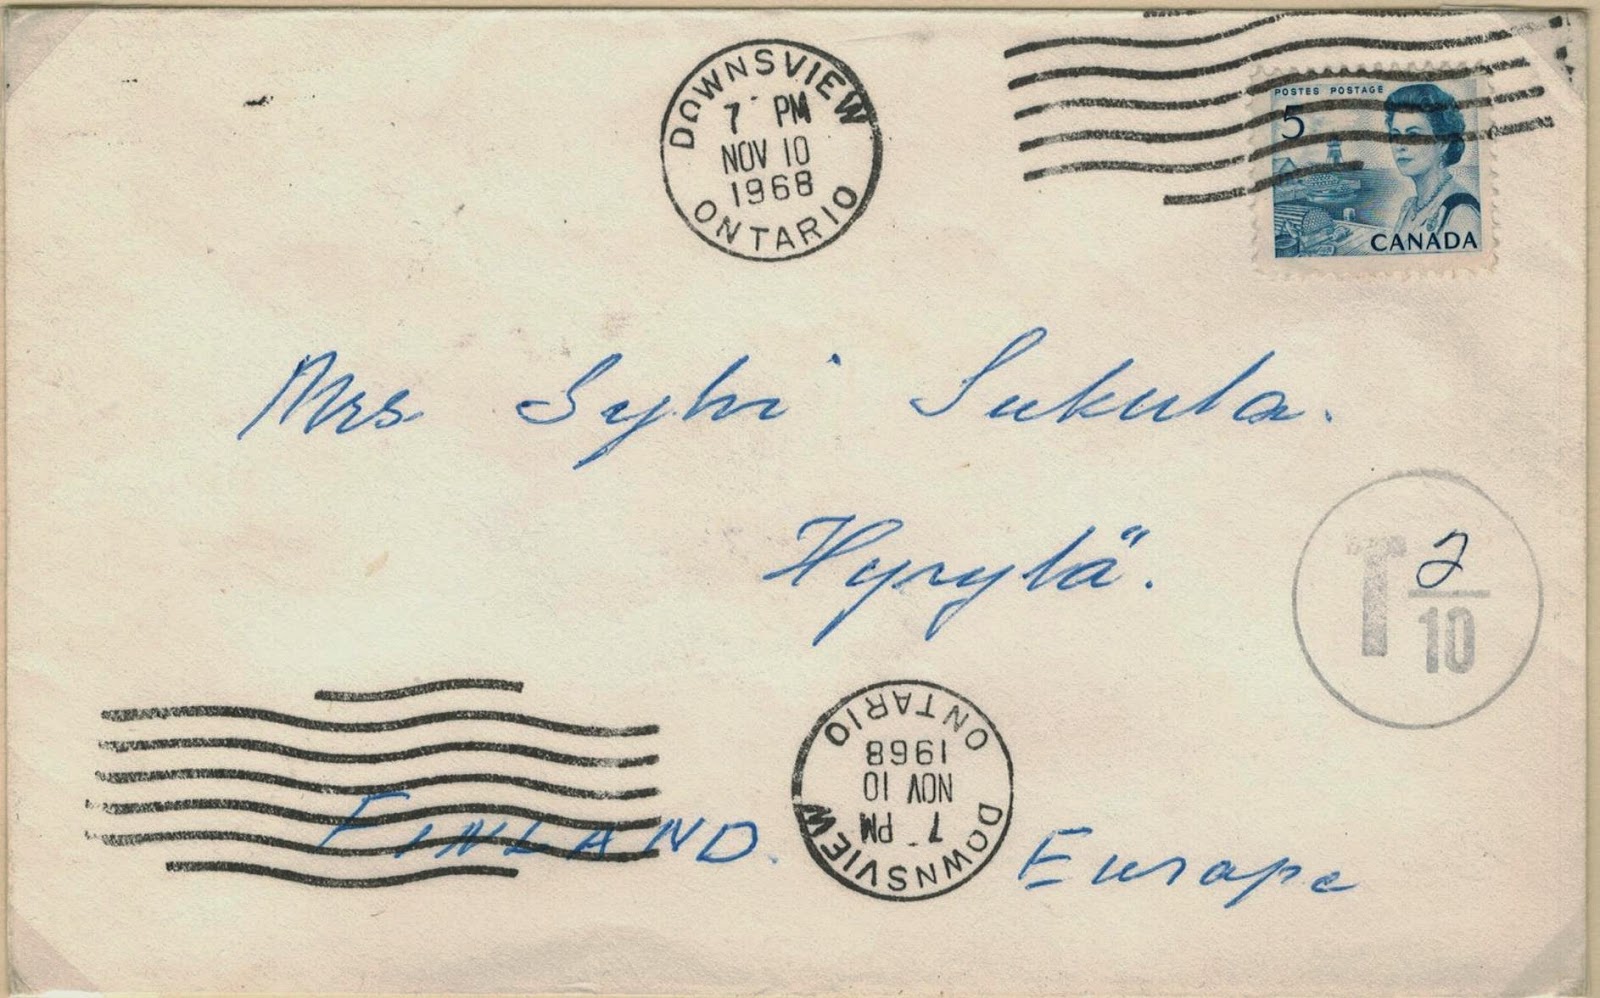 DOWNSVIEW
7 PM
NOV 10
1968
ONTARIO
POSTES POSTAGE
5
CANADA
Mrs Sylvi Sukula.
Hyrylä.
T 2/10
FINLAND. Europe
DOWNSVIEW
7 PM
NOV 10
1968
ONTARIO